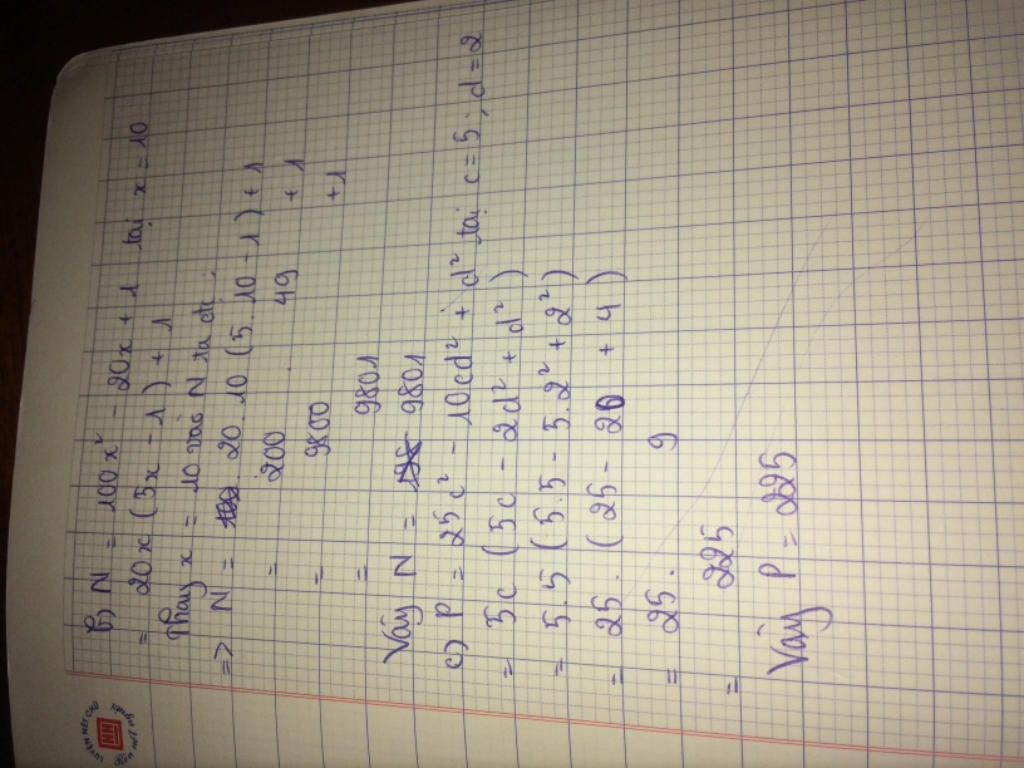 b) N = 100x² - 20x + 1 tại x = 10
= 20x (5x - 1) + 1
Thay x = 10 vào N ta đc:
=> N = 20.10 (5.10 - 1) + 1
= 200 . 49 + 1
= 9800 + 1
= 9801
Vậy N = 9801
c) P = 25c² - 10cd² + d² tại c = 5; d = 2
= 5c (5c - 2d² + d²)
= 5.5 (5.5 - 5.2² + 2²)
= 25. (25 - 20 + 4)
= 25. 9
= 225
Vậy P = 225
LUYỆN NÉT CHỮ